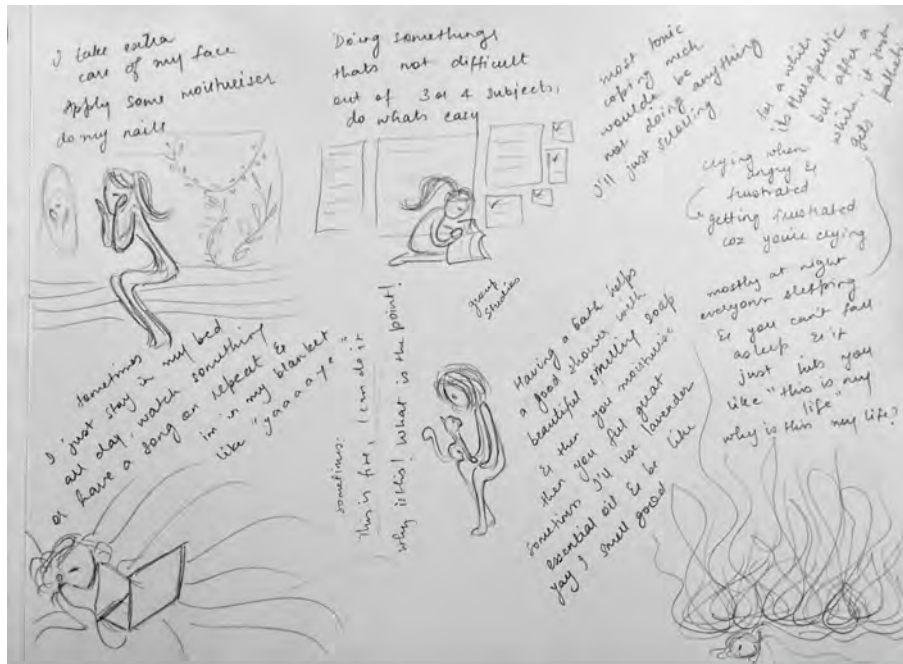 I take extra
care of my face
Apply some moisturiser
do my nails
Doing somethings
thats not difficult
out of 3 or 4 subjects,
do whats easy
most toxic
coping mech
would be
not doing anything
I'll just scrolling
for a while
its therapeutic
but after a
while, it just
gets pathetic
crying when
angry &
frustrated
getting frustrated
coz you're crying
mostly at night
everyone sleeping
& you can't fall
asleep & it
just hits you
like "this is my
life"
why is this my life?
sometimes
I just stay in my bed
all day, watch something
or have a song on repeat &
im in my blanket
like "yaaaay"
sometimes:
This is fine, I can do it
why is this! What is the point!
group
studies
Having a bath helps
a good shower with
beautiful smelling soap
& then you moisturise
then you feel great
Sometimes I'll use lavender
essential oil & be like
yay I smell good